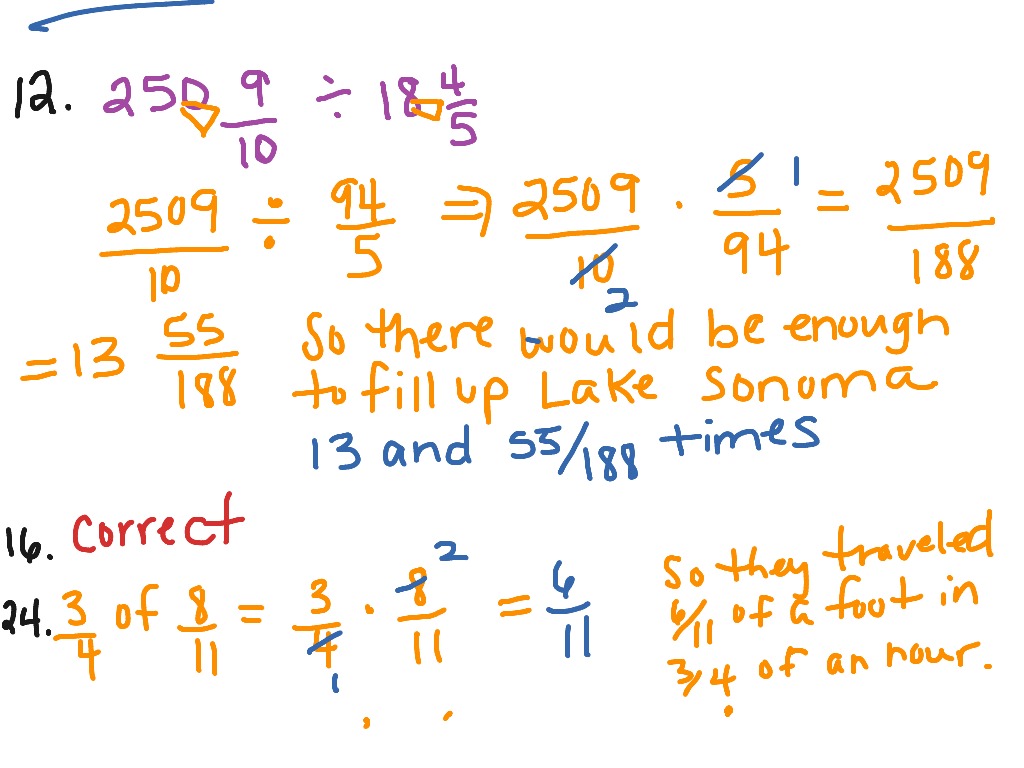 12. 250 9/10 ÷ 18 4/5
2509/10 ÷ 94/5 ⇒ 2509/10 2 · 5/94 1 = 2509/188
= 13 55/188 So there would be enough
to fill up Lake Sonoma
13 and 55/188 times
16. Correct
24. 3/4 of 8/11 = 3/4 1 · 8/11 2 = 6/11
So they traveled
6/11 of a foot in
3/4 of an hour.